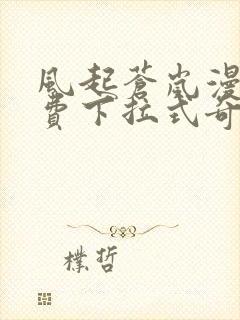 風起蒼嵐漫
費下拉式奇
樸哲